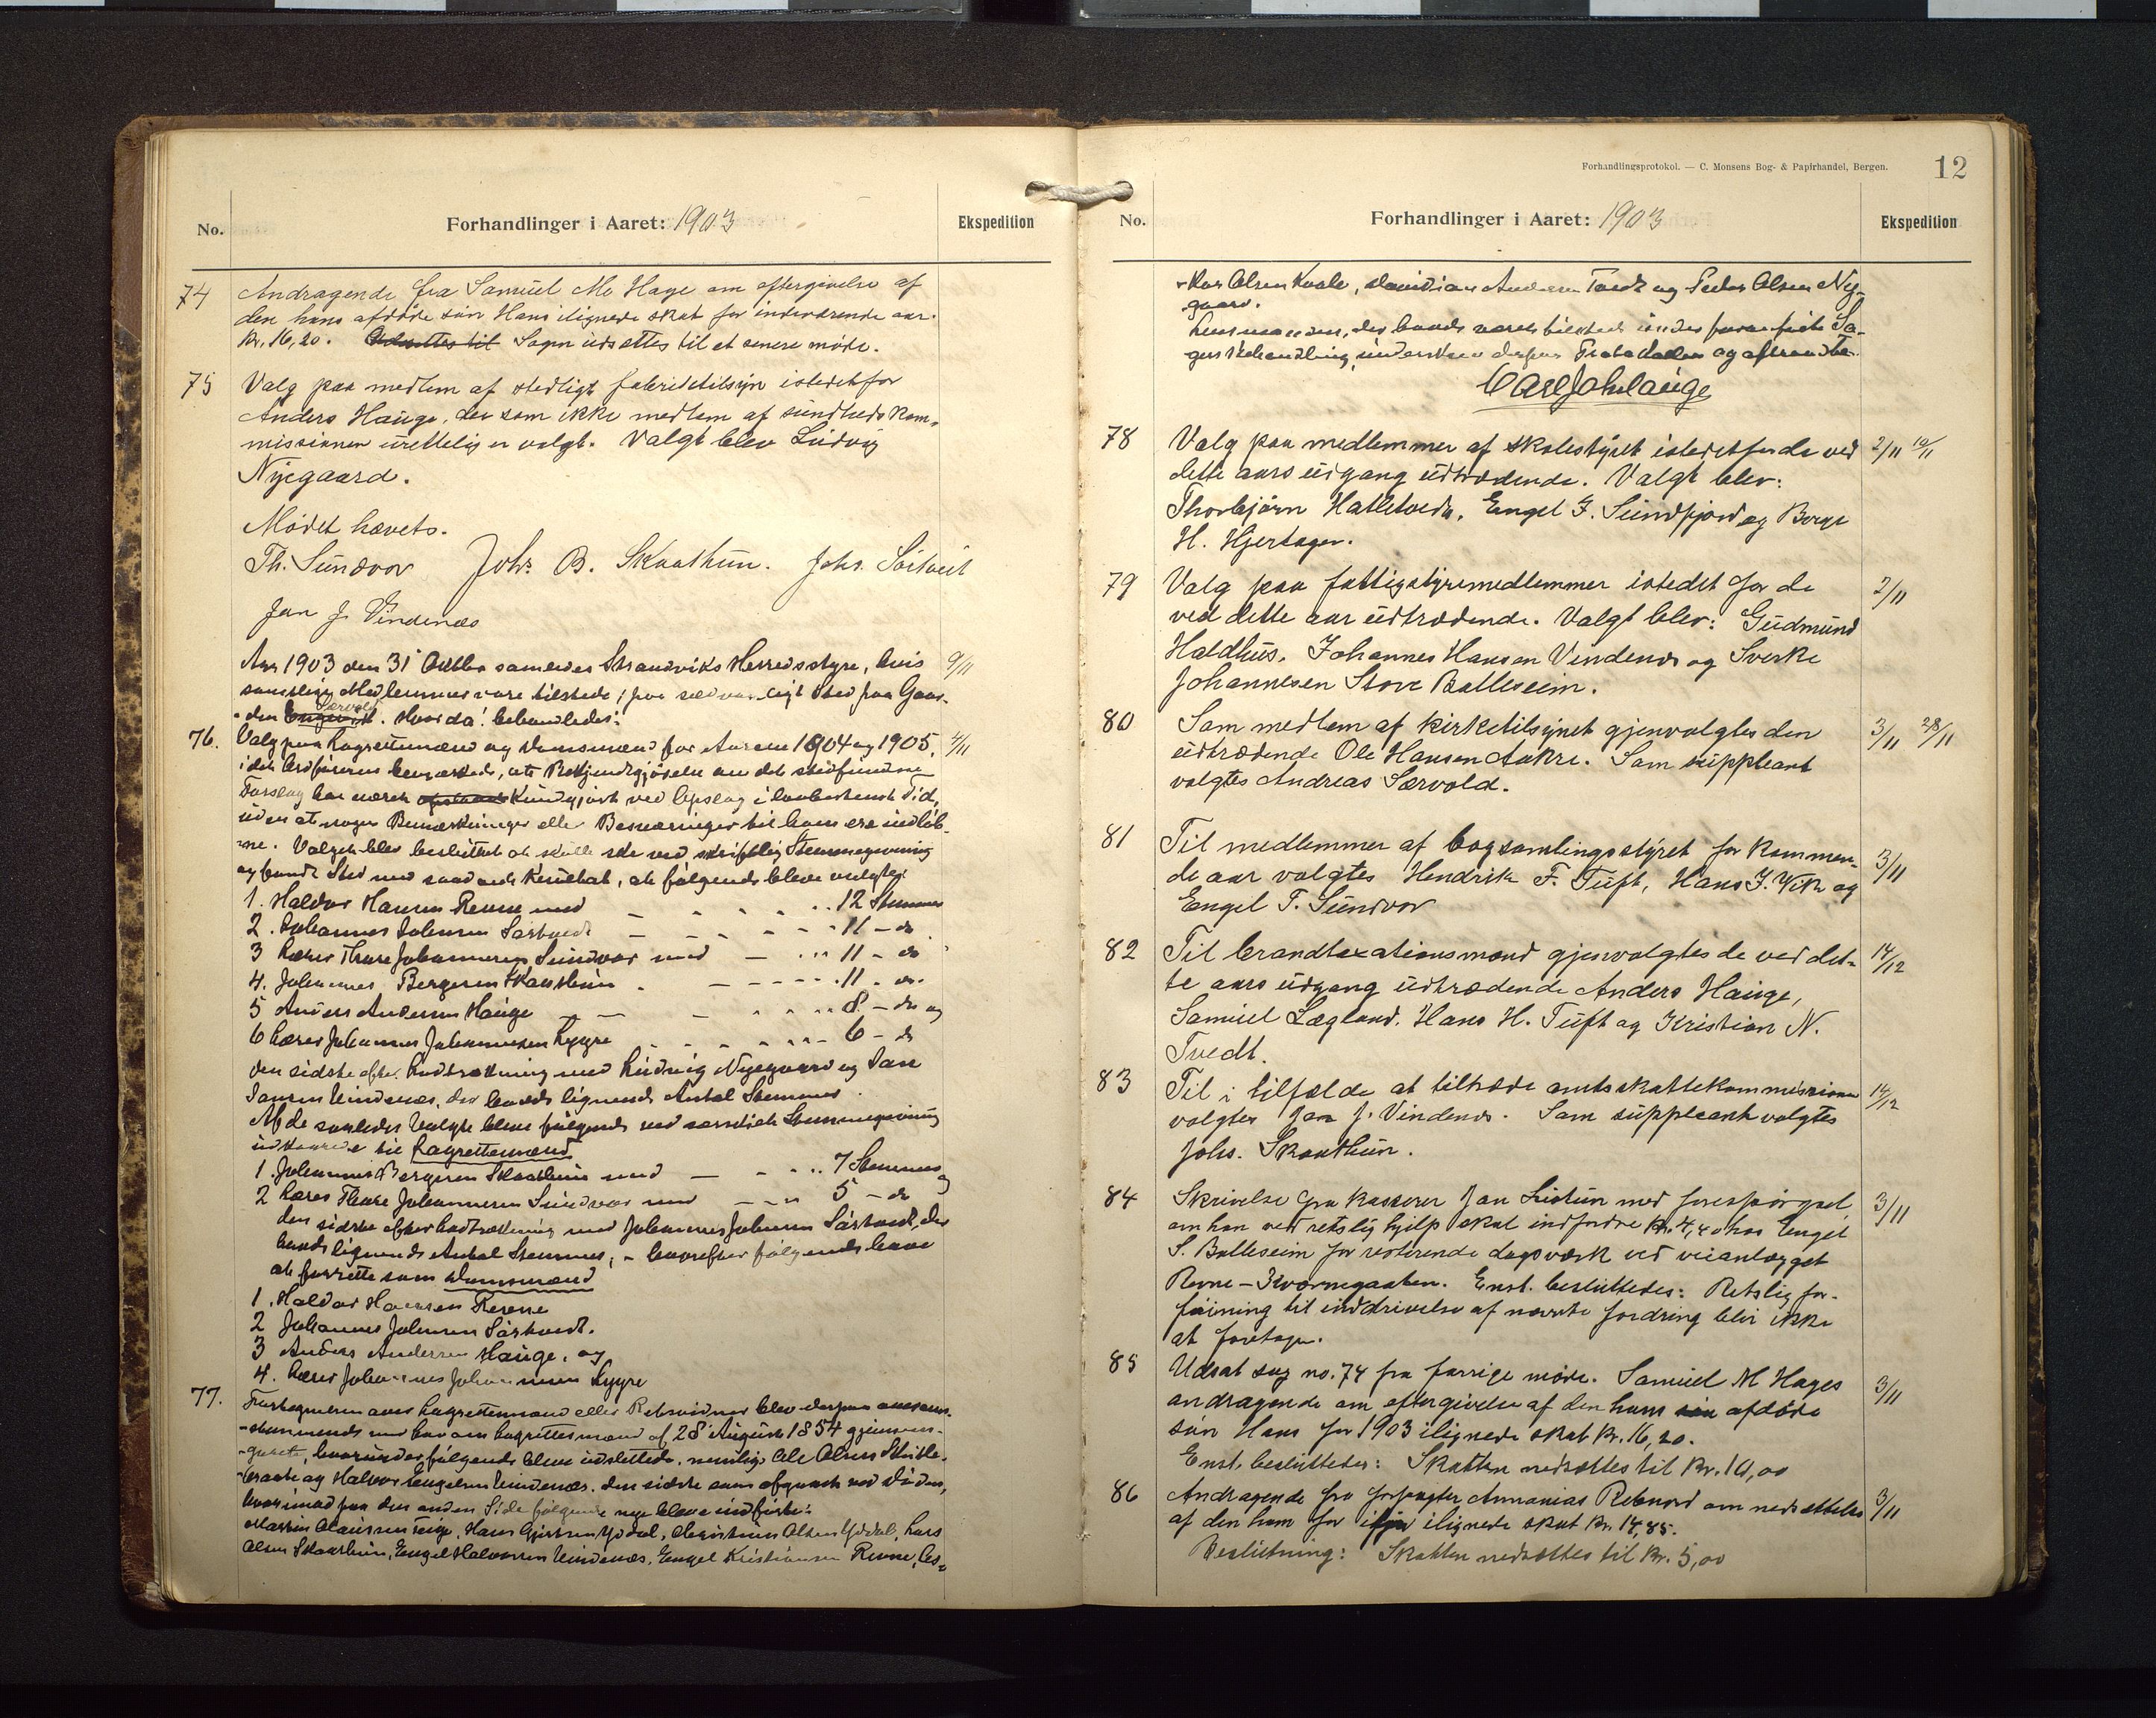 No.
Forhandlinger i Aaret: 1903
Ekspedition
74 Andragende fra Samuel M. Hage om eftergivelse af
den hans afdöde sön Hans ilignede skat for indeværende aar.
Kr. 16,20. Udsættes til Sagen udsættes til et senere möde.
75 Valg paa medlem af stedligt fabriktilsyn istedetfor
Anders Hauge, der som ikke medlem af sundhedskom-
missionen urettelig er valgt. Valgt blev Ludvig
Nygaard.
Mödet hævets.
Th. Sundvor Johs. B. Skaathun. Johs. Sörtveit
Jan J. Vindenæs
Aar 1903 den 31 Oktbr samledes Strandviks Herredsstyre, hvis 9/11
samtlige Medlemmer vare tilstede, paa sædvanligt Sted paa Gaar-
den Engevik Særvold. Hvorda! behandledes:
76. Valg paa Lagrettemænd og Domsmænd for Aarene 1904 og 1905, 4/11
idet Ordföreren bemærkede, at Bekjendtgjörelse om det stedfundne
Forslag har været Kundgjort ved Opslag i lovbestemt Tid,
uden at nogen Bemærkninger eller Besværinger til ham ere indlöb-
ne. Valget blev besluttet at skulle ske ved skriftlig Stemmegivning
og fandt Sted med saadant Resultat, at fölgende bleve valgte:
1. Haldor Hansen Revne med 12 Stemmer
2. Johannes Johnsen Sörtveit 11 - do
3 Lærer Thore Johannesen Sundvor med 11 - do
4. Johannes Bergesen Skaathun 11 - do.
5 Anders Andersen Hauge 8 - do og
6 Lærer Johannes Johannesen Lygre 6 - do
den sidste efter Lodtrækning med Ludvig Nygaard og Jan
Jansen Vindenæs, der havde lignende Antal Stemmer.
Af de saaledes Valgte bleve fölgende ved særskilt Stemmegivning
udkaarede til Lagrettemænd
1. Johannes Bergesen Skaathun med 7 Stemmer og
2 Lærer Thore Johannesen Sundvor med 5 - do
den sidste efter Lodtrækning med Johannes Johnsen Sörtveit, der
havde lignende Antal Stemmer, - hvorefter fölgende have
at forrette som Domsmænd
1. Haldor Hansen Revne
2 Johannes Johnsen Sörtveit.
3 Anders Andersen Hauge, og
4. Lærer Johannes Johannesen Lygre
77. Fortegnelsen over Lagrettemænd eller Retsvidner blev derpaa overens-
stemmende med Lov om Lagrettesmænd af 28 August 1854 gjennem-
gaaet, hvorunder fölgende bleve udslettede, nemlig: Ole Olsen
og Halvor Engelsen Vindenæs, den sidste som afgaaet ved Döden,
hvorimod paa den anden Side fölgende nye bleve indförte:
Olsen Skaathun, Engel Halvorsen Vindenæs, Engel Kristiansen Revne,
Forhandlingsprotokol. — C. Monsens Bog- & Papirhandel, Bergen.
12
No.
Forhandlinger i Aaret: 1903
Ekspedition
Olsen Kvale, Andersen Tvedt og Peder Olsen Ny-
gaard.
Lensmanden, der havde været tilstede under foranförte Sa-
gers Behandling, underskrev derpaa Protokollen og aftraadte.
Carl Joh. Lauge
78 Valg paa medlemmer af skolestyret istedetfor de ved 2/11 10/11
dette aars udgang udtrædende. Valgt blev:
Thorbjörn Hatletvedt, Engel J. Sundfjord og Berge
H. Hjertager.
79 Valg paa fattigstyremedlemmer istedet for de 2/11
ved dette aar udtrædende. Valgt blev: Gudmund
Haldhus, Johannes Hansen Vindenæs og Sverke
Johannesen Store Balleseim.
80 Som medlem af kirketilsynet gjenvalgtes den 3/11 28/11
udtrædende Ole Hansen Aakre. Som suppleant
valgtes Andreas Særvold.
81 Til medlemmer af bogsamlingsstyret for kommen- 3/11
de aar valgtes Hendrik F. Tuft, Hans J. Vik og
Engel T. Sundvor
82 Til brandtaxationsmænd gjenvalgtes de ved det- 14/12
te aars udgang udtrædende Anders Hauge,
Samuel Lægland, Hans H. Tuft og Kristian N.
Tvedt.
83 Til i tilfælde at tiltræde amtsskattekommissionen 14/12
valgtes Jan J. Vindenæs. Som suppleant valgtes
Johs. Skaathun.
84 Skrivelse fra kasserer Jan Listun med forespörgsel 3/11
om han ved retslig hjelp skal indfordre Kr. 4,40 hos Engel
S. Balleseim for resterende dagsværk ved veianlægget
Revne - Kvernegaaten. Enst. besluttedes: Retslig for-
föining til inddrivelse af nævnte fordring blir ikke
at foretage.
85 Udsat sag no. 74 fra forrige möde. Samuel M Hages 3/11
andragende om eftergivelse af den hans sön afdöde
sön Hans for 1903 ilignede skat Kr. 16,20.
Enst. besluttedes: Skatten nedsættes til Kr. 10,00
86 Andragende fra forpagter Annanias Rebnord om nedsættelse 3/11
af den ham for iaar ilignede skat Kr. 14,85.
Beslutning: Skatten nedsættes til Kr. 5,00